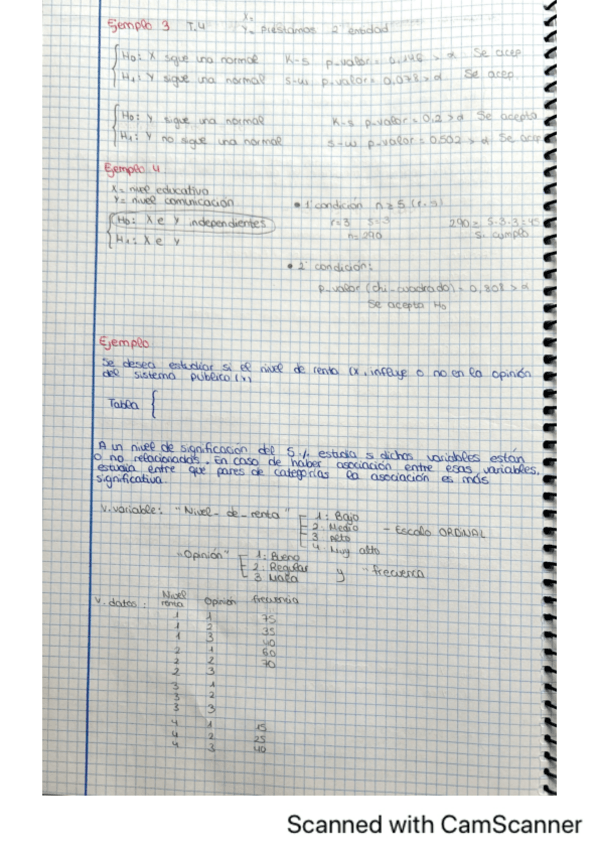 Ejemplo 3 T.4
X=
Y= préstamos 2ª entidad
H₀: X sigue una normal K-S p-valor = 0,148 > α Se acep
H₁: Y sigue una normal S-W p-valor = 0,078 > α Se acep.
H₀: Y sigue una normal K-S p-valor = 0,2 > α Se acepta
H₁: Y no sigue una normal S-W p-valor = 0,502 > α Se acep
Ejemplo 4
X = nivel educativo
Y = nivel comunicación
H₀: X e Y independientes
H₁: X e Y
• 1ª condición n ≥ 5 (r·s)
r=3 s=3 290 ≥ 5·3·3=45
n=290 Sí cumple
• 2ª condición:
p-valor (chi-cuadrado) = 0,808 > α
Se acepta H₀
Ejemplo
Se desea estudiar si el nivel de renta (X) influye o no en la opinión
del sistema público (Y)
Tabla {
A un nivel de significación del 5% estudia si dichas variables están
o no relacionadas. En caso de haber asociación entre esas variables,
estudia entre qué pares de categorías la asociación es más
significativa.
V.variable: "Nivel_de_renta" 1: Bajo
2: Medio
3: Alto
4: Muy alto
- Escala ORDINAL
"Opinión" 1: Bueno
2: Regular
3: Mala
y "frecuencia
V. datos: Nivel renta Opinión frecuencia
1 1 75
1 2 35
1 3 40
2 1 60
2 2 70
2 3
3 1
3 2
3 3
4 1 15
4 2 25
4 3 40
Scanned with CamScanner